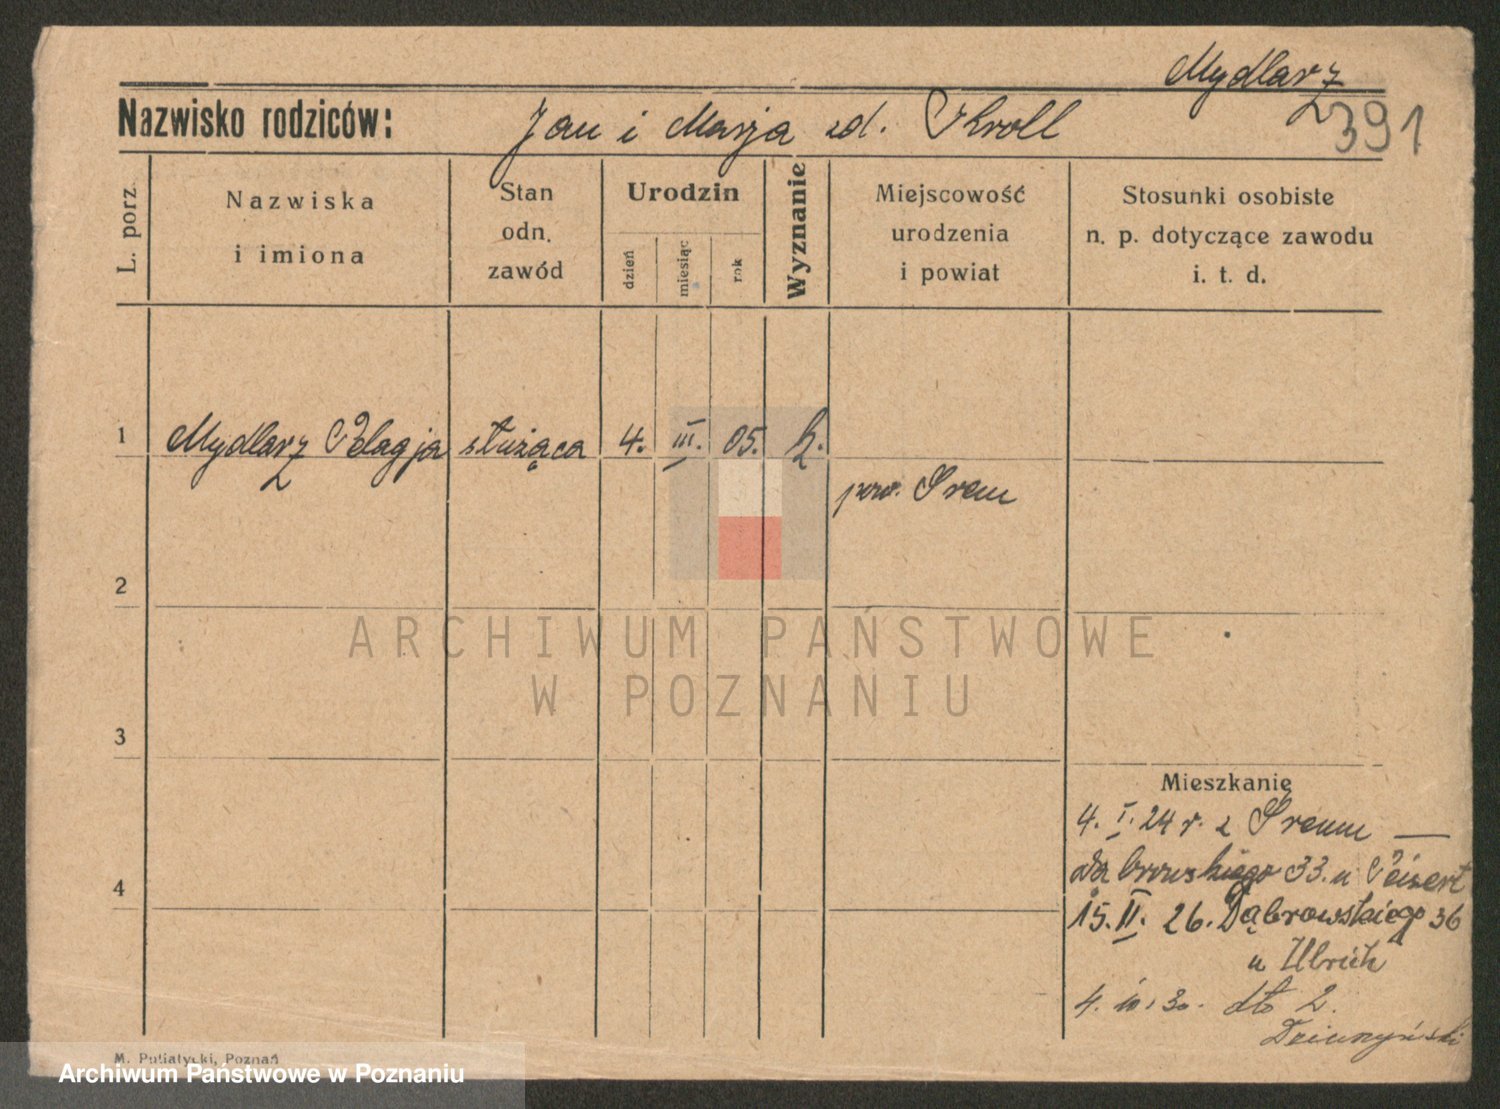 Mydlarz
391
Nazwisko rodziców: Jan i Marja zd. Kroll
L. porz.
Nazwiska
i imiona
Stan
odn.
zawód
Urodzin
dzień
miesiąc
rok
Wyznanie
Miejscowość
urodzenia
i powiat
Stosunki osobiste
n. p. dotyczące zawodu
i. t. d.
1 Mydlarz Pelagja służąca 4. III. 05. k.
pow. Śrem
2
3
4
Mieszkanie
4. I. 24 r. z Śremu —
Dąbrowskiego 33. u
15. II. 26. Dąbrowskiego 36
u Ulrich
4. 30. dto 2.
M. Putiatycki, Poznań
ARCHIWUM PAŃSTWOWE
W POZNANIU
Archiwum Państwowe w Poznaniu